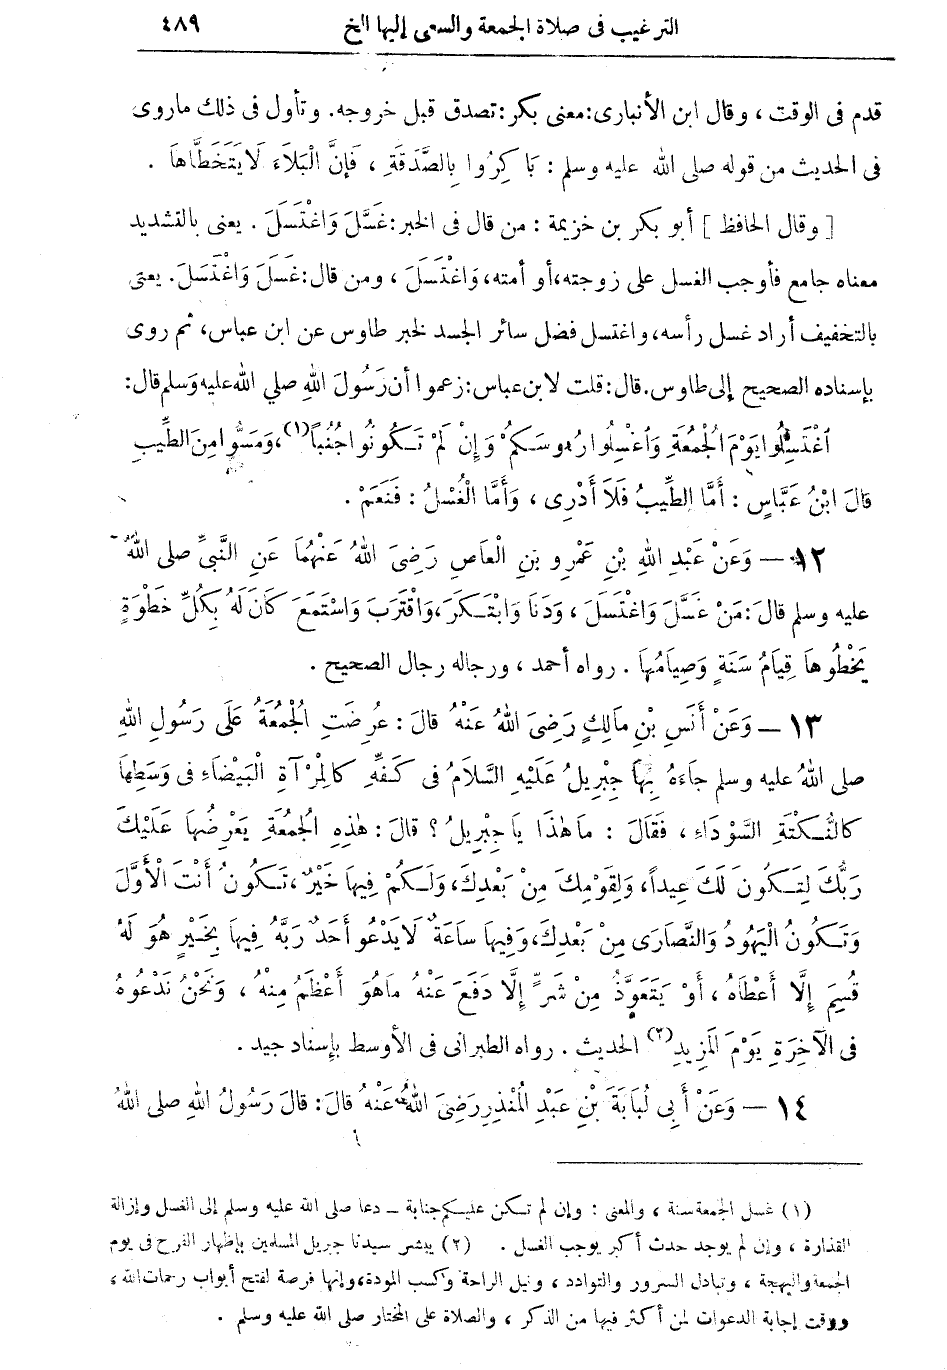 الترغيب فى صلاة الجمعة والسعى إليها الخ ٤٨٩
قدم فى الوقت ، وقال ابن الأنبارى: معنى بكر: تصدق قبل خروجه. وتأول فى ذلك ماروى
فى الحديث من قوله صلى الله عليه وسلم : بَا كِرُوا بِالصَّدَقَةِ ، فَإِنَّ الْبَلَاءَ لَا يَتَخَطَّاهَا .
[ وقال الحافظ ] أبو بكر بن خزيمة : من قال فى الخبر: غَسَّلَ وَاغْتَسَلَ . يعنى بالتشديد
معناه جامع فأوجب الغسل على زوجته، أو أمته، وَاغْتَسَلَ ، ومن قال: غَسَلَ وَاغْتَسَلَ. يعنى
بالتخفيف أراد غسل رأسه، واغتسل فضل سائر الجسد لخبر طاوس عن ابن عباس، ثم روى
بإسناده الصحيح إلى طاوس. قال: قلت لابن عباس: زعموا أن رَسُولَ اللهِ صلي الله عليه وَسلم قال:
اغْتَسِلُوا يَوْمَ الْجُمُعَةِ وَاغْسِلُوا رُءُوسَكُمْ وَإِنْ لَمْ تَكُونُوا جُنُباً (١)، وَمَسُّوا مِنَ الطِّيبِ
قَالَ ابْنُ عَبَّاسٍ : أَمَّا الطِّيبُ فَلَا أَدْرِى ، وَأَمَّا الْغُسْلُ : فَنَعَمْ .
١٢ — وَعَنْ عَبْدِ اللهِ بْنِ عَمْرِو بنِ الْعَاصِ رَضِىَ اللهُ عَنْهُمَا عَنِ النَّبِيِّ صلى اللهُ
عليه وسلم قالَ: مَنْ غَسَّلَ وَاغْتَسَلَ ، وَدَنَا وَابْتَكَرَ، وَاقْتَرَبَ وَاسْتَمَعَ كَانَ لَهُ بِكُلِّ خَطْوَةٍ
يَخْطُوهَا قِيَامُ سَنَةٍ وَصِيَامُهَا . رواه أحمد ، ورجاله رجال الصحيح .
١٣ — وَعَنْ أَنَسِ بْنِ مَالِكٍ رَضِىَ اللهُ عَنْهُ قَالَ : عُرِضَتِ الْجُمُعَةُ عَلَى رَسُولِ اللهِ
صلى اللهُ عليه وسلم جَاءَهُ بِهَا جِبْرِيلُ عَلَيْهِ السَّلَامُ فى كَفِّهِ كَالْمِرْآةِ الْبَيْضَاءِ فى وَسَطِهَا
كَالنُّكْتَةِ السَّوْدَاءِ ، فَقَالَ : مَا هٰذَا يَا جِبْرِيلُ ؟ قَالَ : هٰذِهِ الْجُمُعَةِ يَعْرِضُهَا عَلَيْكَ
رَبُّكَ لِتَكُونَ لَكَ عِيداً، وَلِقَوْمِكَ مِنْ بَعْدِكَ، وَلَكُمْ فِيهَا خَيْرٌ، تَكُونُ أَنْتَ الْأَوَّلَ
وَتَكُونُ الْيَهُودُ وَالنَّصَارَى مِنْ بَعْدِكَ، وَفِيهَا سَاعَةٌ لَا يَدْعُو أَحَدٌ رَبَّهُ فِيهَا بِخَيْرٍ هُوَ لَهُ
قُسِمَ إِلَّا أَعْطَاهُ ، أَوْ يَتَعَوَّذُ مِنْ شَرٍّ إِلَّا دَفَعَ عَنْهُ مَا هُوَ أَعْظَمُ مِنْهُ ، وَنَحْنُ نَدْعُوهُ
فى الْآخِرَةِ يَوْمَ الْمَزِيدِ (٢) الحديث . رواه الطبرانى فى الأوسط بإسناد جيد .
١٤ — وَعَنْ أَبِى لُبَابَةَ بْنِ عَبْدِ الْمُنْذِرِ رَضِىَ اللهُ عَنْهُ قَالَ : قَالَ رَسُولُ اللهِ صلى اللهُ
(١) غسل الجمعة سنة ، والمعنى : وإن لم تكن عليكم جنابة – دعا صلى الله عليه وسلم إلى الغسل وإزالة
القذارة ، وإن لم يوجد حدث أكبر يوجب الغسل . (٢) يبشر سيدنا جبريل المسلمين بإظهار الفرح فى يوم
الجمعة والبهجة ، وتبادل السرور والتوادد ، ونيل الراحة وكسب المودة، وإنها فرصة لفتح أبواب رحمات الله ،
ووقت إجابة الدعوات لمن أكثر فيها من الذكر ، والصلاة على المختار صلى الله عليه وسلم .